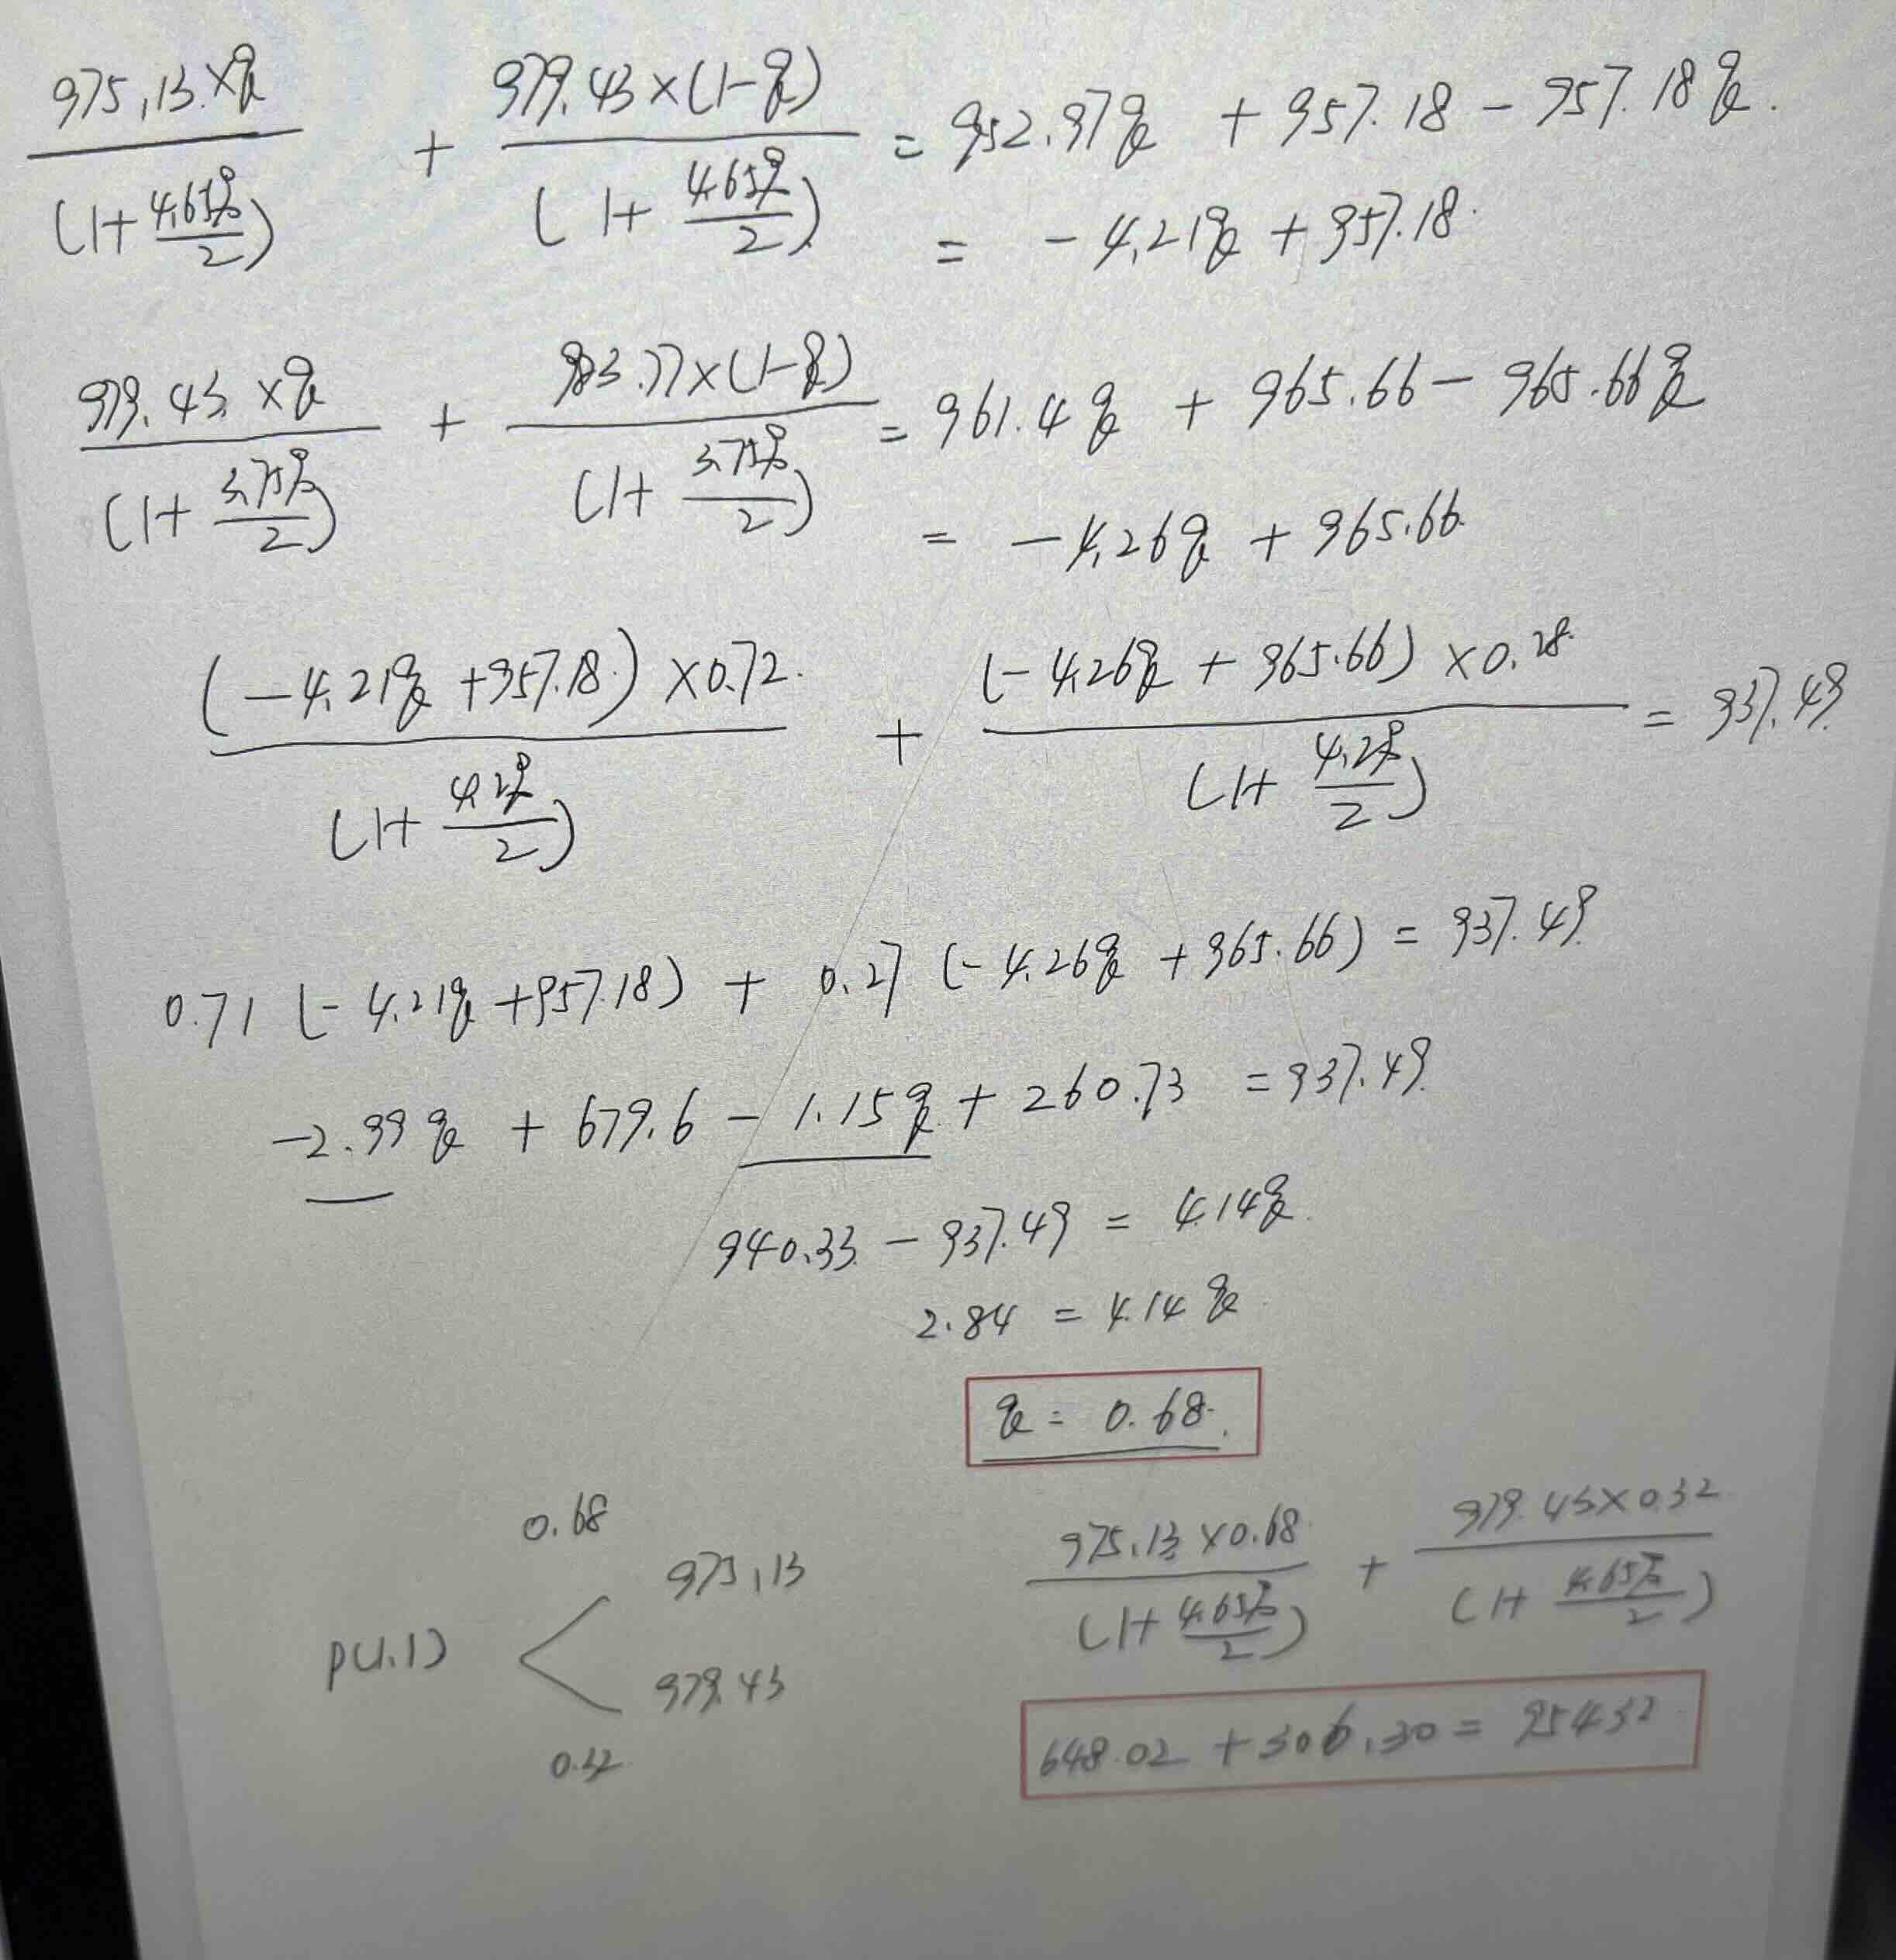 975.13 × q / (1 + 4.65% / 2) + 979.43 × (1 - q) / (1 + 4.65% / 2) = 952.97q + 957.18 - 957.18q.
= -4.21q + 957.18.
979.43 × q / (1 + 3.75% / 2) + 983.77 × (1 - q) / (1 + 3.75% / 2) = 961.4q + 965.66 - 965.66q
= -4.26q + 965.66.
(-4.21q + 957.18) × 0.72. / (1 + 4.2% / 2) + (-4.26q + 965.66) × 0.28. / (1 + 4.2% / 2) = 937.49.
0.71 (-4.21q + 957.18) + 0.27 (-4.26q + 965.66) = 937.49.
-2.99q + 679.6 - 1.15q + 260.73 = 937.49.
940.33 - 937.49 = 4.14q.
2.84 = 4.14q.
q = 0.68.
0.68
P(1.1) < 975.13
979.43
0.32
975.13 × 0.68 / (1 + 4.65% / 2) + 979.43 × 0.32 / (1 + 4.65% / 2)
648.02 + 306.30 = 954.32